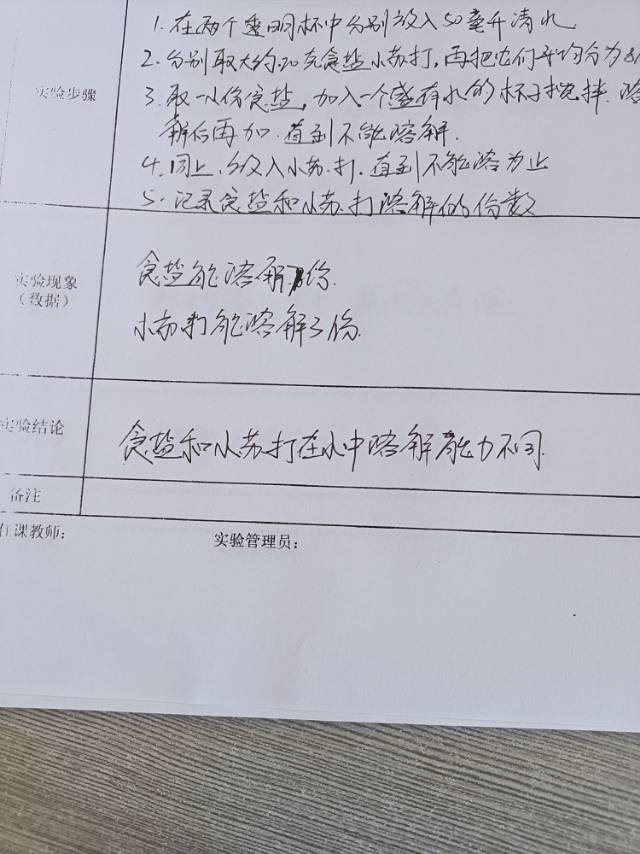 1. 在两个透明杯中分别放入50毫升清水
实验步骤
2. 分别取大约20克食盐小苏打,再把它们平均分为8
3. 取一小份食盐,加入一个盛有水的杯子搅拌.溶
解后再加.直到不能溶解.
4. 同上,放入小苏.打.直到不能溶为止
5. 记录食盐和小苏.打溶解的份数
实验现象
(数据)
食盐能溶解 份.
小苏打能溶解3份.
实验结论
食盐和小苏打在水中溶解能力不同.
备注
任课教师:
实验管理员: